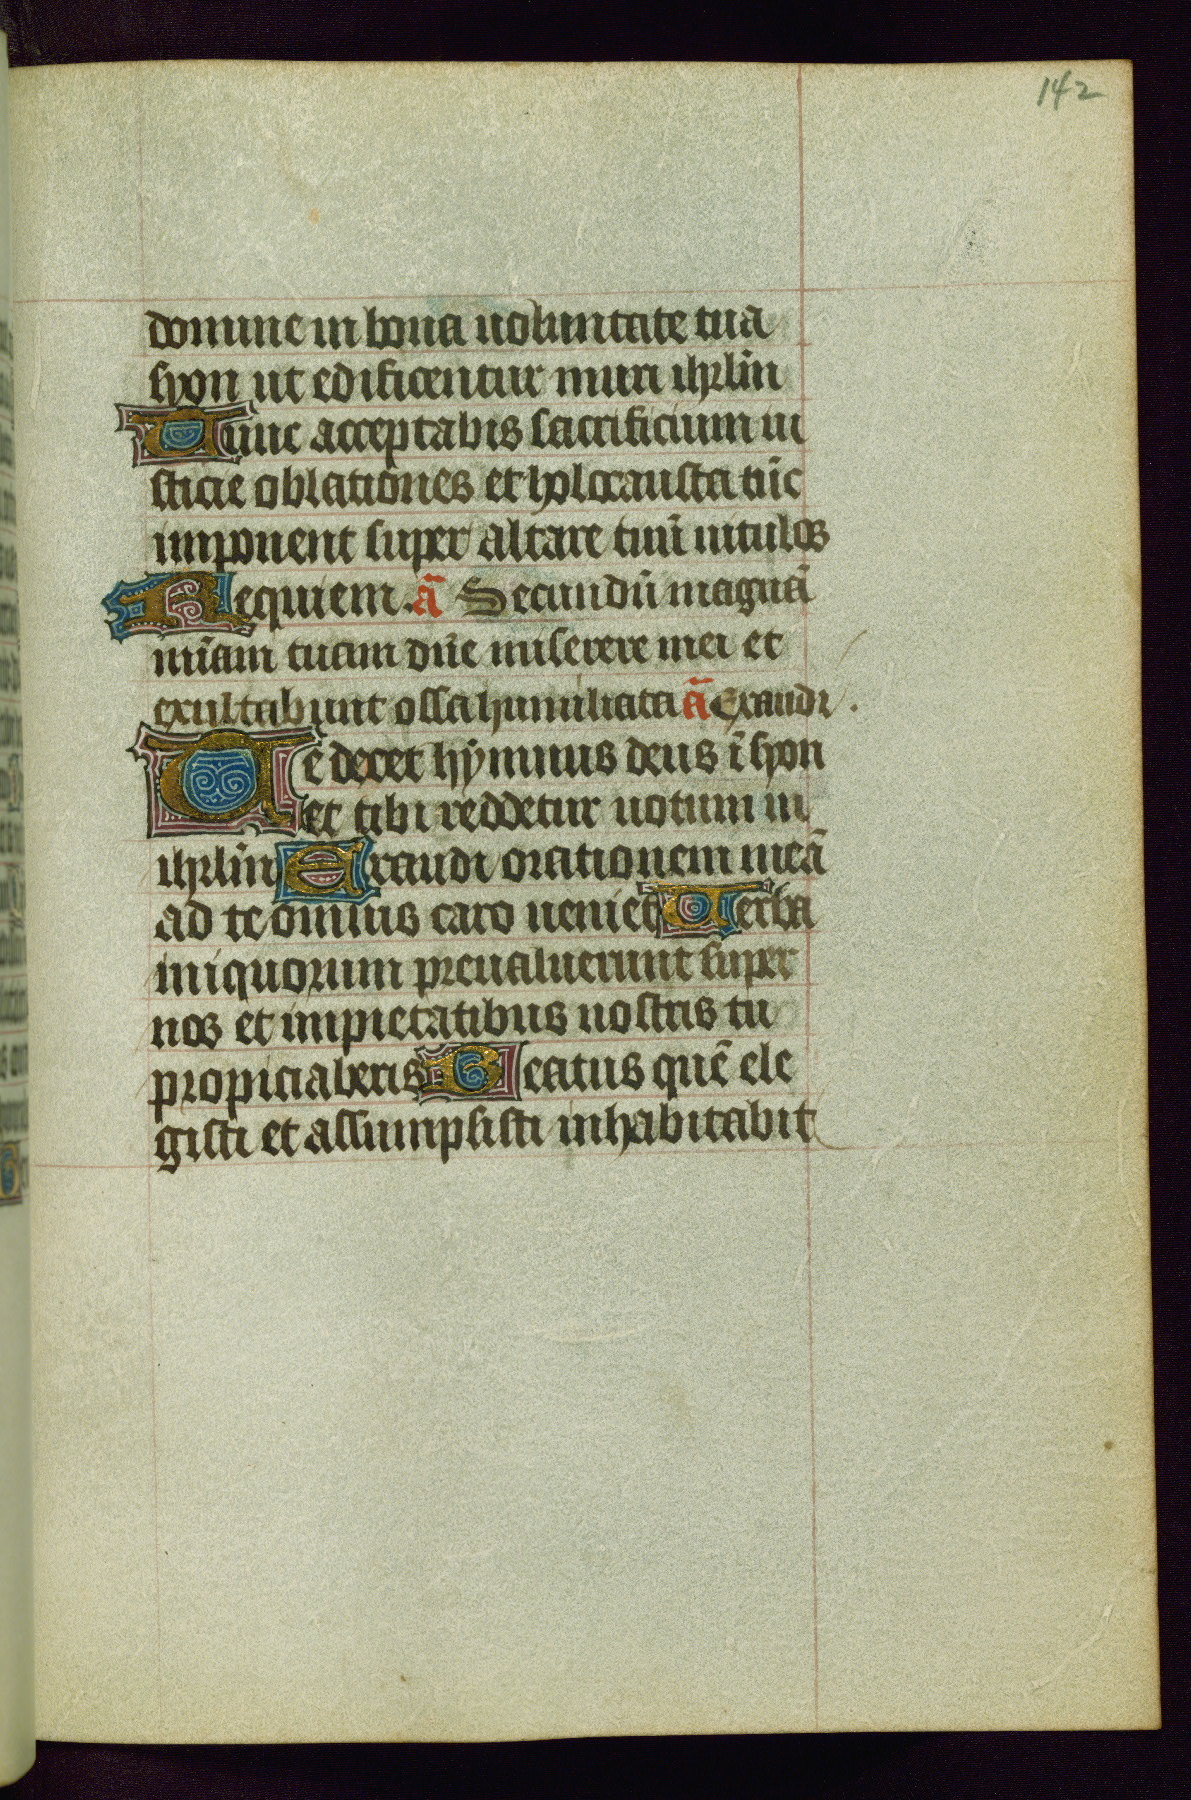 142
domine in bona uoluntate tua
syon ut edificentur muri ihrlm̄
Tunc acceptabis sacrificium iu
sticie oblationes et holocausta tūc
imponent super altare tuū uitulos
Requiem. ā Secundū magnā
mīam tuam dn̄e miserere mei et
exultabunt ossa humiliata ā Exaudi.
Te decet hẏmnus deus ī syon
et tibi reddetur uotum in
ihrlm̄ Exaudi orationem meā
ad te omnis caro ueniet Uerba
iniquorum preualuerunt super
nos et impietatibus nostris tu
propiciaberis Beatus quē ele
gisti et assumpsisti inhabitabit